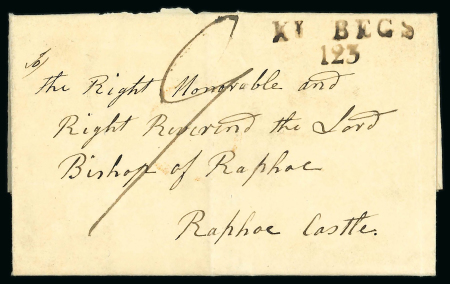 KI BEGS
123
To
the Right Honorable and
Right Reverend the Lord
Bishop of Raphoe
Raphoe Castle.